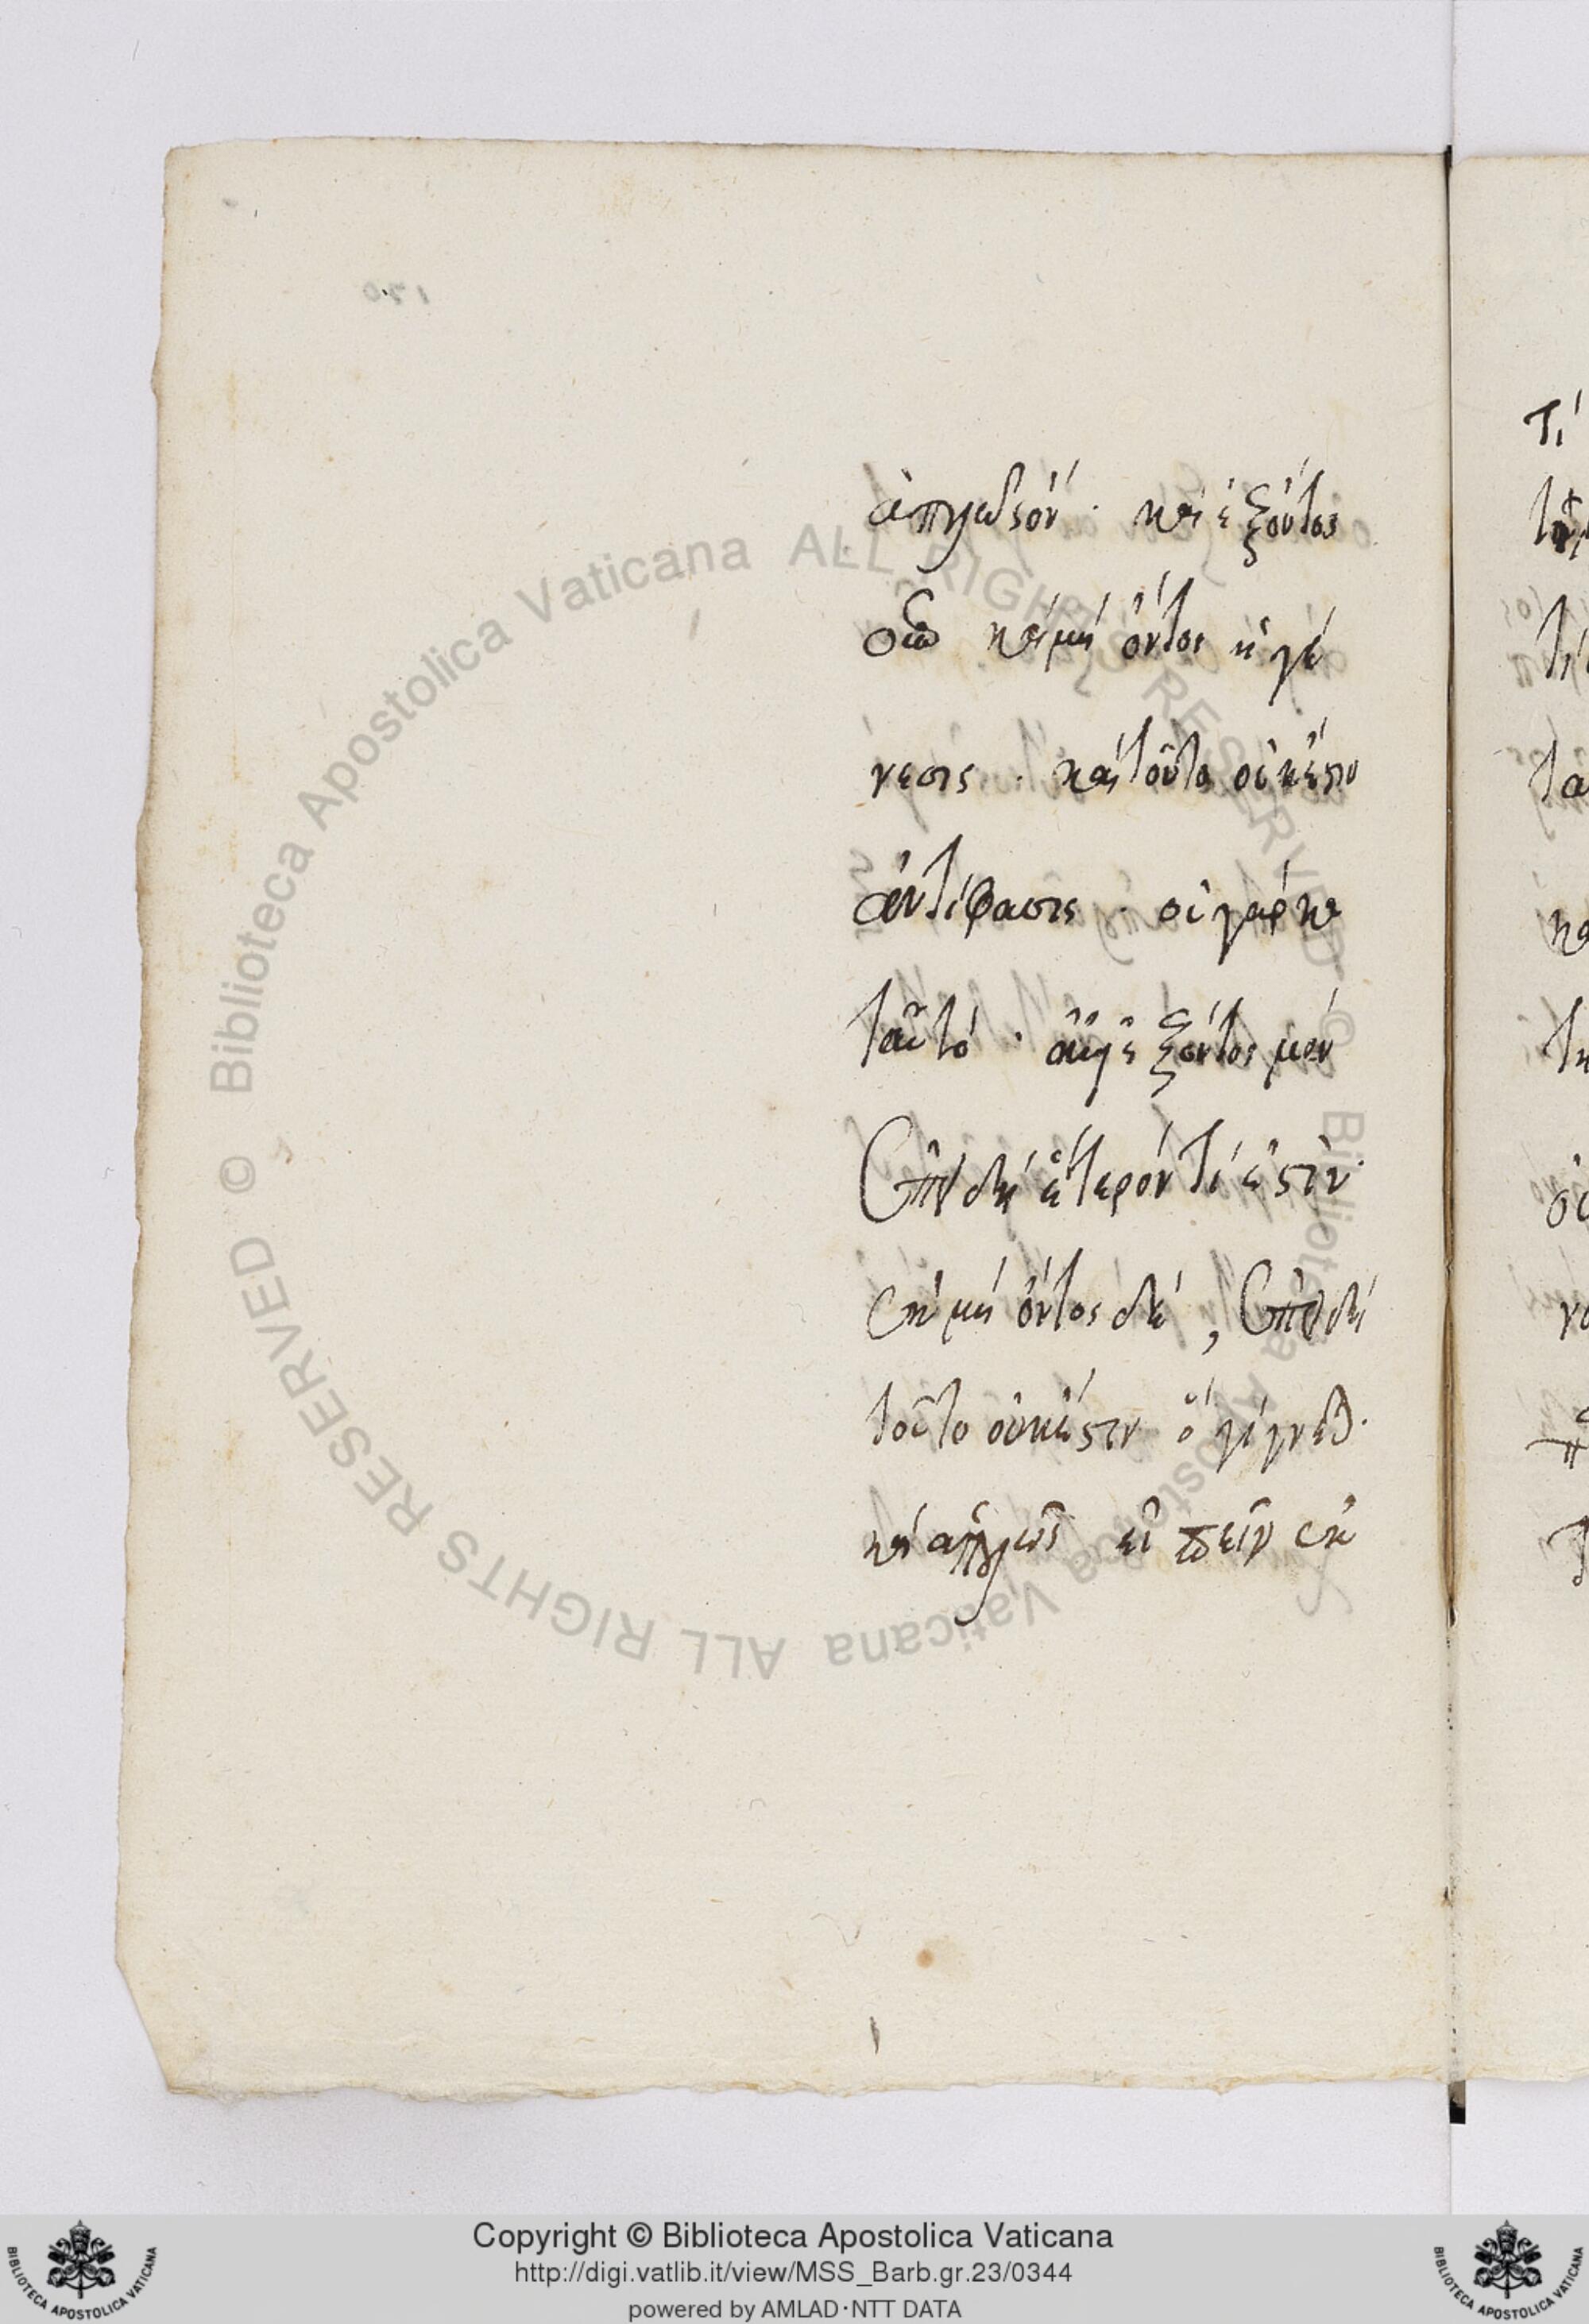 ἁπλῶς ὄν · καὶ ἐξ ὄντος
οὖν καὶ μὴ ὄντος ἡ γέ
νεσις · καὶ τοῦτο οὐκ ἔστιν
ἀντίφασις · οὐ γὰρ κα
ταὐτό · ἀλλ' ἐξ ὄντος μὲν
ἐπειδὴ ἕτερόν τί ἐστιν·
ἐκ μὴ ὄντος δὲ, ἐπειδὴ
τοῦτο οὐκ ἔστιν ὃ γίγνεται·
καὶ ἁπλῶς εἰπεῖν ἐκ
Biblioteca Apostolica Vaticana ALL RIGHTS RESERVED ©
Biblioteca Apostolica Vaticana ALL RIGHTS RESERVED ©
Copyright © Biblioteca Apostolica Vaticana
http://digi.vatlib.it/view/MSS_Barb.gr.23/0344
powered by AMLAD·NTT DATA
BIBLIOTECA APOSTOLICA VATICANA
BIBLIOTECA APOSTOLICA VATICANA